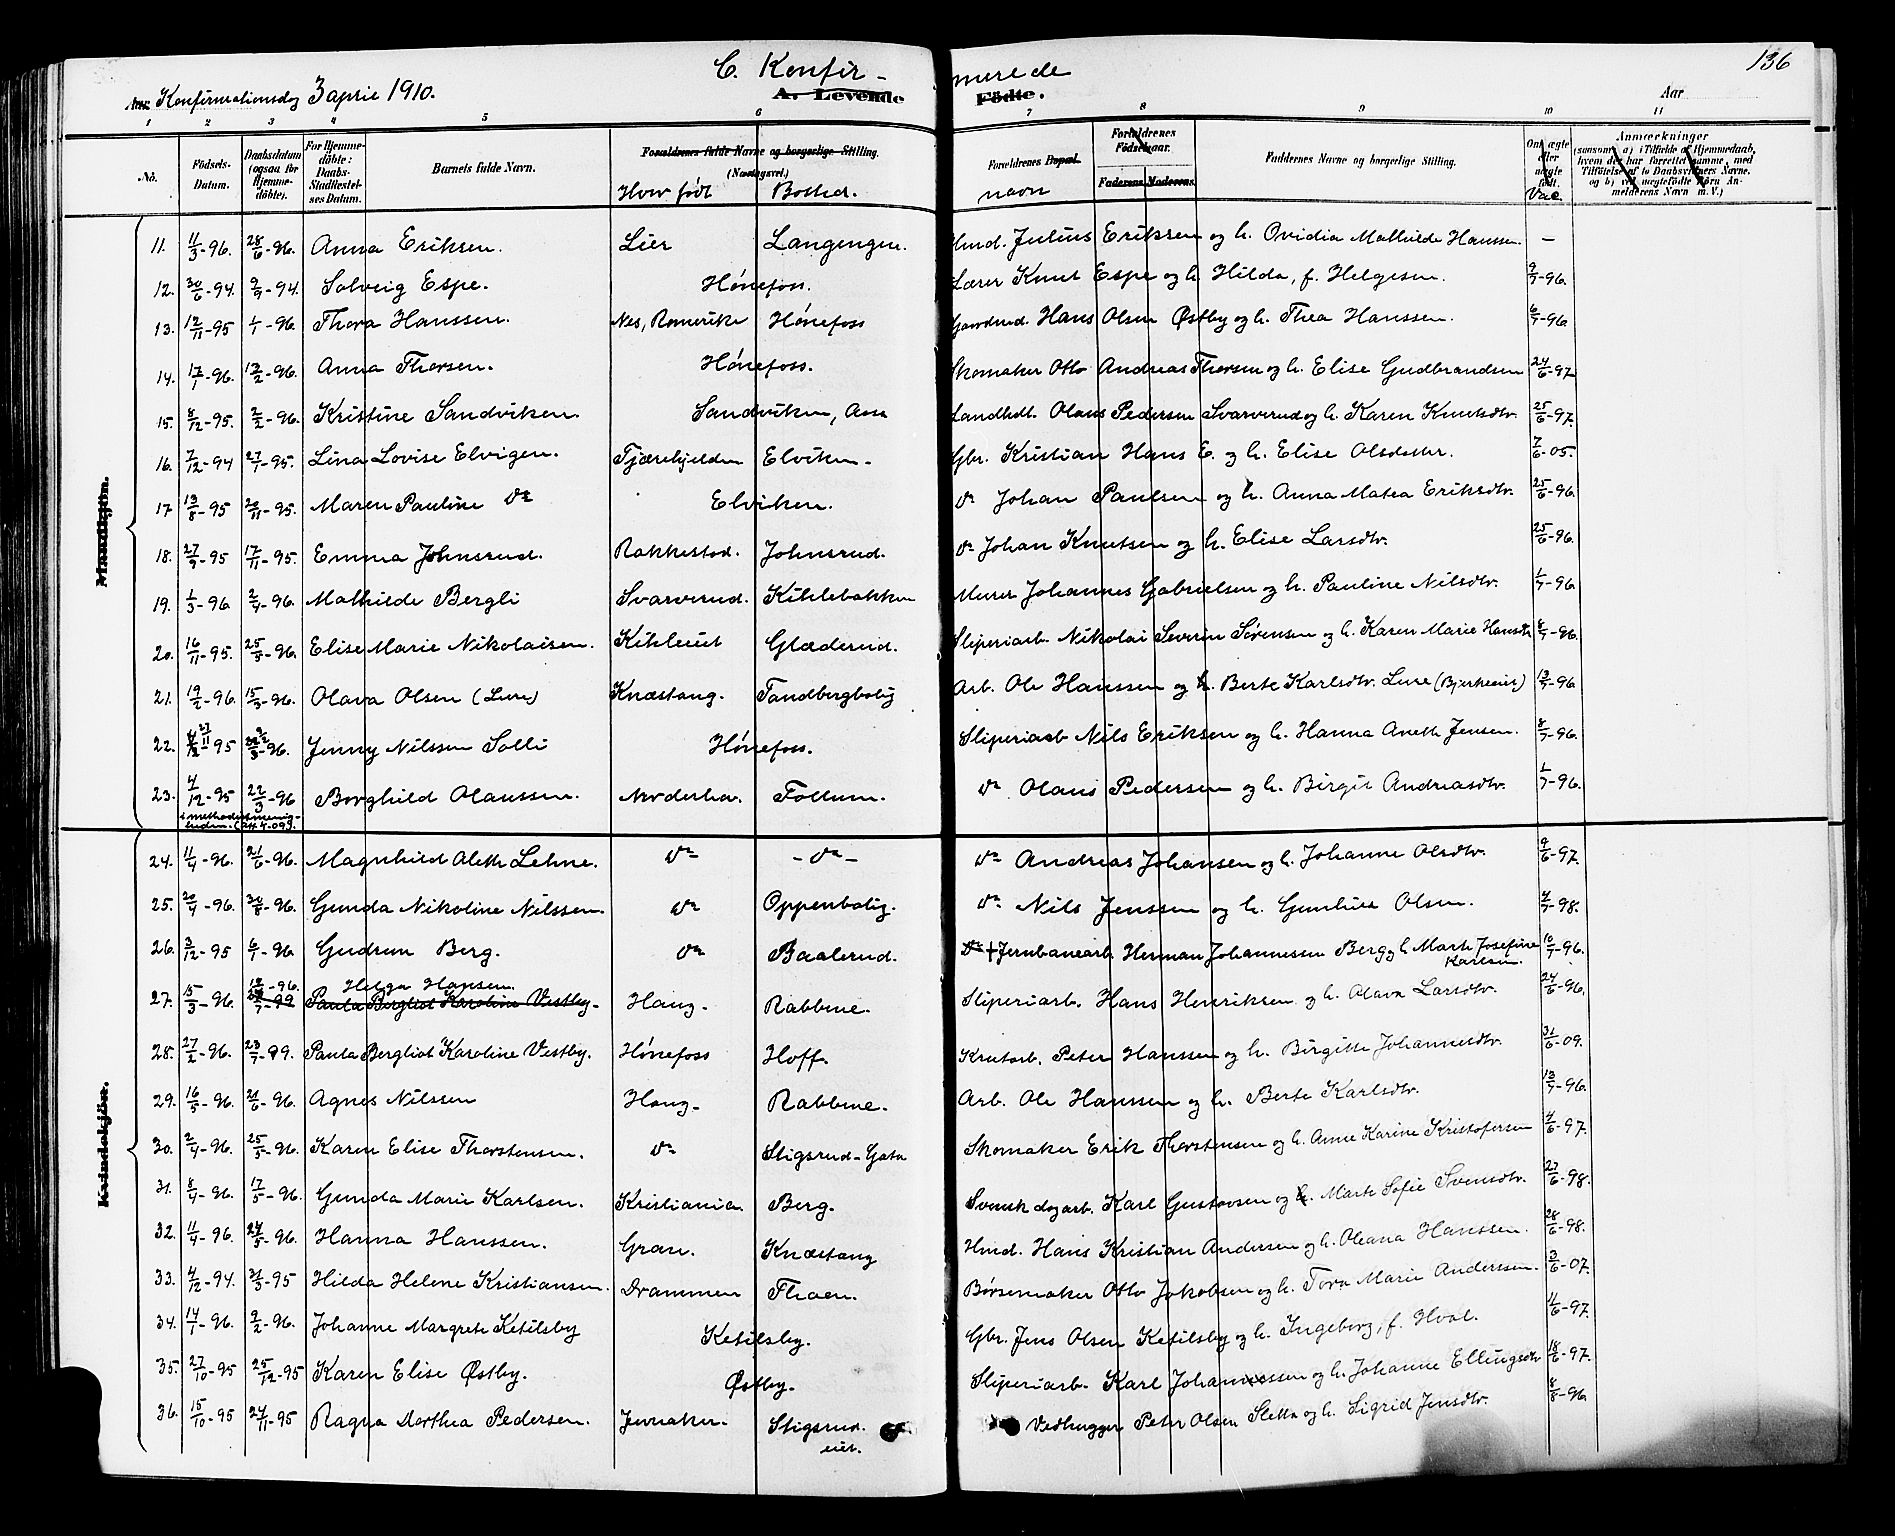 136
C. Konfirmerede
A. Levende Födte.
Aar Konfirmationsdag 3 april 1910.
Aar
1 2 3 4 5 6 7 8 9 10 11
No. Födsels-Datum. Daabsdatum (ogsaa for Hjemme-döbte). For Hjemme-döbte: Daabs-Stadfæstel-ses Datum. Barnets fulde Navn. Forældrenes fulde Navne og borgerlige Stilling. (Næringsvei.) Forældrenes Bopæl. Forældrenes Födselsaar. Faderens. Moderens. Faddernes Navne og borgerlige Stilling. Om ægte eller uægte født. Anmærkninger (saasom: a) i Tilfælde af Hjemmedaab, hvem der har forrettet samme, med Tilføielse af to Daabsvidners Navne, og b) ved uægtefødte Børn Anmelderens Navn m. V.)
Hvor født Bosted. navn Vac.
Mandkjön.
11. 11/3-96. 28/6-96. Anna Eriksen. Lier Langengen. Hmd. Julius Eriksen og h. Ovidia Mathilde Hanssen. -
12. 30/6-94. 9/9-94. Solveig Espe. Hönefoss. Lærer Knut Espe og h. Hilda, f. Helgesen. 9/7-96.
13. 12/11-95 1/1-96. Thora Hanssen. Nes, Romerike Hönefoss Gaardmd. Hans Olsen Østby og h. Thea Hanssen. 6/7-96
14. 17/1-96. 12/2-96. Anna Thorsen. Hönefoss. Skomaker Otto Andreas Thorsen og h. Elise Gudbrandsen 24/6-97
15. 8/12-95. 2/2-96. Kristine Sandviken. Sandviken, Aasa Landhdl. Olaus Pedersen Svarverud og h. Karen Knutsdtr. 25/6-97.
16. 7/12-94 27/1-95. Lina Lovise Elvigen. Tjærehjelden Elviken- Gbr. Kristian Hans E. og h. Elise Olsdatter. 7/6-05.
17 13/8-95 20/11-95. Maren Pauline do Elviken. do Johan Paulsen og h. Anna Matea Eriksdtr. 25/6-96.
18. 27/9-95 17/11-95. Emma Johnsrud. Rakkestad. Johnsrud. do Johan Knutsen og h. Elise Larsdtr. 25/6-96.
19. 1/3-96 2/4-96. Mathilde Bergli Svarverud. Kihlebakken Murer Johannes Gabrielsen og h. Pauline Nilsdtr. 1/7-96
20. 16/11-95. 25/3-96. Elise Marie Nikolaisen. Kihleeiet Glæderud. Sliperiarb. Nikolai Severin Sørensen og h. Karen Marie Hansdtr 8/7-96.
21. 19/2-96. 15/3-96. Olava Olsen (Lure) Knæstang. Tandbergbolig Arb. Ole Hanssen og h. Berte Karlsdtr. Lure (Bjerkeeiet) 13/7-96
22. 27/11-95 22/3-96. Jenny Nilssen Solli Hönefoss. Sliperiarb Nils Eriksen og h. Hanna Aneth Jensen. 8/7-96.
23. 4/12-95 22/3-96 Borghild Olaussen. Norderhov. Follum. do Olaus Pedersen og h. Birgit Andreasdtr. 1/7-96.
i methodistmenig-
heden. (24.4.09).
Kvindekjön.
24. 11/4-96. 21/6-96. Magnhild Aleth Lehne. do -do- do Andreas Johansen og h. Johanne Olsdtr. 9/6-97.
25. 20/4-96. 30/8-96. Gunda Nikoline Nilssen. do Oppenbolig. do Nils Jenssen og h. Gunhild Olsen. 4/7-98.
26. 3/12-95 6/1-96 Gudrun Berg. do Baalerud. do + Jernbanearb. Herman Johannesen Berg og h Marth Josefine Karlsen. 10/7-96.
27. 15/3-96. 12/7-96. Helga Hansen. Paula Bergliot Karoline Vestby. Haug- Rabbene. Sliperiarb. Hans Henriksen og h. Olava Larsdtr. 24/6-96.
28. 27/2-96. 23/7-99. Paula Bergliot Karoline Vestby. Hönefoss Hoff. Krutarb. Peter Hanssen og h. Birgitte Johannesdtr. 31/6-09.
29. 16/5-96. 21/6-96. Agnes Nilssen Haug- Rabbene. Arb. Ole Hanssen og h. Berte Karlsdtr. 13/7-96.
30. 2/4-96. 25/5-96. Karen Elise Thorstensen. do Stigsrud-Gata Skomaker Erik Thorstensen og h. Anne Karine Kristofersen 4/6-97.
31. 8/4-96. 17/5-96. Gunda Marie Karlsen. Kristiania Berg. Svensk dagarb. Karl Gustavsen og h. Marte Sofie Svensdtr. 27/6-98.
32. 11/4-96. 24/5-96. Hanna Hanssen. Gran. Knæstang Hmd. Hans Kristian Andersen og h. Oleana Hanssen. 28/6-98.
33. 4/12-94. 31/3-95 Hilda Helene Kristiansen. Drammen Thaen. Børsemaker Otto Jakobsen og h. Tora Marie Anderssen. 3/6-07.
34. 14/1-96. 9/2-96. Johanne Margrete Ketilsby Ketilsby. Gbr. Jens Olsen Ketilsby og h. Ingeborg, f. Hval. 11/6-97.
35. 27/10-95 25/12-95 Karen Elise Østby. Østby. Sliperiarb. Karl Johannessen og h. Johanne Ellingsdtr 18/6-97.
36. 15/10-95 24/11-95 Ragna Marthea Pedersen. Jevnaker. Stigsrud-eiet. Vedhugger Peter Olsen Sletta og h. Sigrid Jensdtr. 8/8-96.